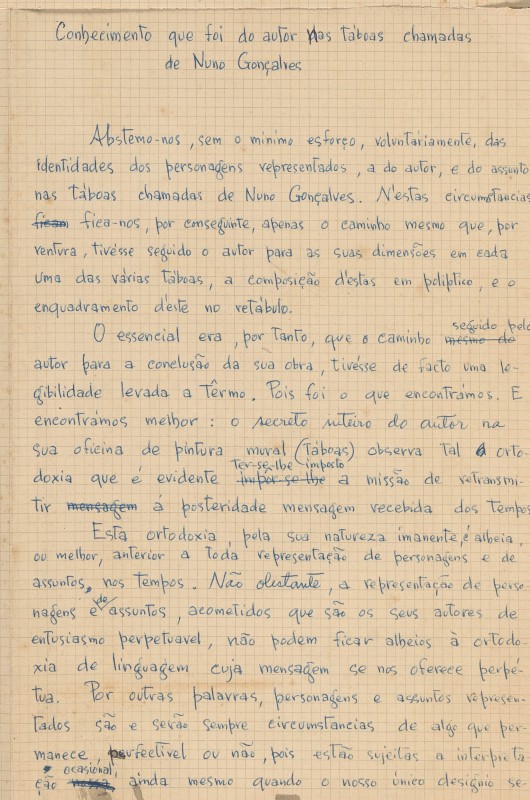 Conhecimento que foi do autor nas táboas chamadas
de Nuno Gonçalves
Abstemo-nos, sem o minimo esforço, voluntáriamente, das
identidades dos personagens representados, a do autor, e do assunto
nas táboas chamadas de Nuno Gonçalves. N'estas circumstancias
ficam fica-nos, por conseguinte, apenas o caminho mesmo que, por
ventura, tivésse seguido o autor para as suas dimensões em cada
uma das várias táboas, a composição d'estas em poliptico, e o
enquadramento d'este no retábulo.
seguido pelo
O essencial era, por tanto, que o caminho mesmo do
autor para a conclusão da sua obra, tivésse de facto uma le-
gibilidade levada a têrmo. Pois foi o que encontrámos. E
encontrámos melhor: o secreto roteiro do autor na
sua oficina de pintura mural (táboas) observa tal orto-
Ter-se-lhe imposto
doxia que é evidente impôr-se-lhe a missão de retransmi-
tir mensagem á posteridade mensagem recebida dos tempos
Esta ortodoxia, pela sua natureza imanente, é alheia,
ou melhor, anterior a toda representação de personagens e de
assuntos, nos tempos. Não obstante, a representação de perso-
de
nagens e assuntos, acometidos que são os seus autores de
entusiasmo perpetuavel, não podem ficar alheios à ortodo-
xia de linguagem cuja mensagem se nos oferece perpé-
tua. Por outras palavras, personagens e assuntos represen-
tados são e serão sempre circumstancias de algo que per-
manece, perfectivel ou não, pois estão sujeitas a interpreta-
ocasional,
ção nossa ainda mesmo quando o nosso único designio se-